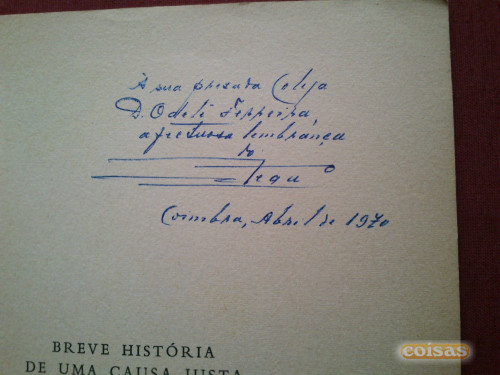 À sua presada Colega
D. Odete Ferreira,
afectuosa lembrança
do
Coimbra, Abril de 1970
BREVE HISTÓRIA
DE UMA CAUSA JUSTA
coisas